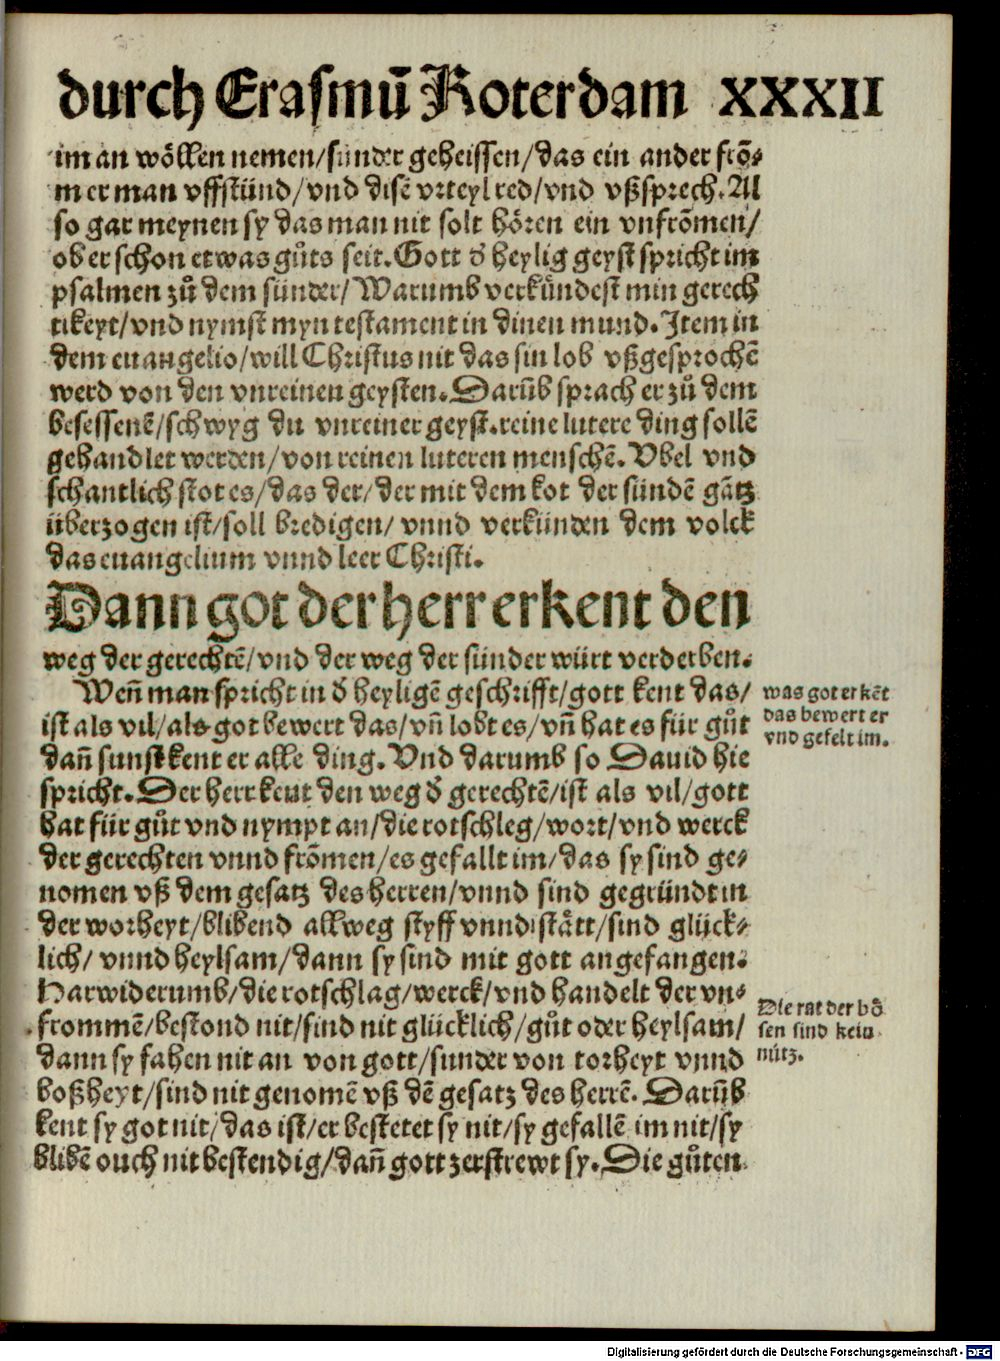 durch Erasmū Roterdam XXXII
im an wöllen nemen/sunder geheissen/das ein ander frō⸗
mer man vffstünd/vnd disē vrteyl red/vnd vßsprech. Al
so gar meynen sy das man nit solt hören ein vnfrōmen/
ob er schon etwas gůts seit. Gott d̄ heylig geyst spricht im
psalmen zů dem sünder/Warumb verkündest min gerech
tikeyt/vnd nymst myn testament in dinen mund. Item in
dem euangelio/will Christus nit das sin lob vßgesprochē
werd von den vnreinen geysten. Darūb sprach er zů dem
besessenē/schwyg du vnreiner geyst. reine lutere ding sollē
gehandlet werden/von reinen luteren menschē. Vbel vnd
schantlich stot es/das der/der mit dem kot der sündē gātz
überzogen ist/soll bredigen/vnnd verkünden dem volck
das euangelium vnnd leer Christi.
Dann got der herr erkent den
weg der gerechtē/vnd der weg der sünder würt verderben.
Weñ man spricht in d̄ heyligē geschrifft/gott kent das/
ist als vil/als got bewert das/vñ lobt es/vñ hat es für gůt
dañ sunst kent er alle ding. Vnd darumb so Dauid hie
spricht. Der herr kent den weg d̄ gerechtē/ist als vil/gott
hat für gůt vnd nympt an/die rotschleg/wort/vnd werck
der gerechten vnnd frōmen/es gefallt im/das sy sind ge⸗
nomen vß dem gesatz des herren/vnnd sind gegründt in
der worheyt/blibend allweg styff vnnd stätt/sind glück⸗
lich/vnnd heylsam/dann sy sind mit gott angefangen.
Harwiderumb/die rotschlag/werck/vnd handelt der vn⸗
frommē/bestond nit/sind nit glücklich/gůt oder heylsam/
dann sy fahen nit an von gott/sunder von torheyt vnnd
boßheyt/sind nit genomē vß dē gesatz des herrē. Darūb
kent sy got nit/das ist/er bestetet sy nit/sy gefallē im nit/sy
blibē ouch nit bestendig/dañ gott zerstrewt sy. Die gůten
was got erkēt
das bewert er
vnd gefelt im.
Die rat der bö
sen sind kein
nütz.
Digitalisierung gefördert durch die Deutsche Forschungsgemeinschaft - DFG